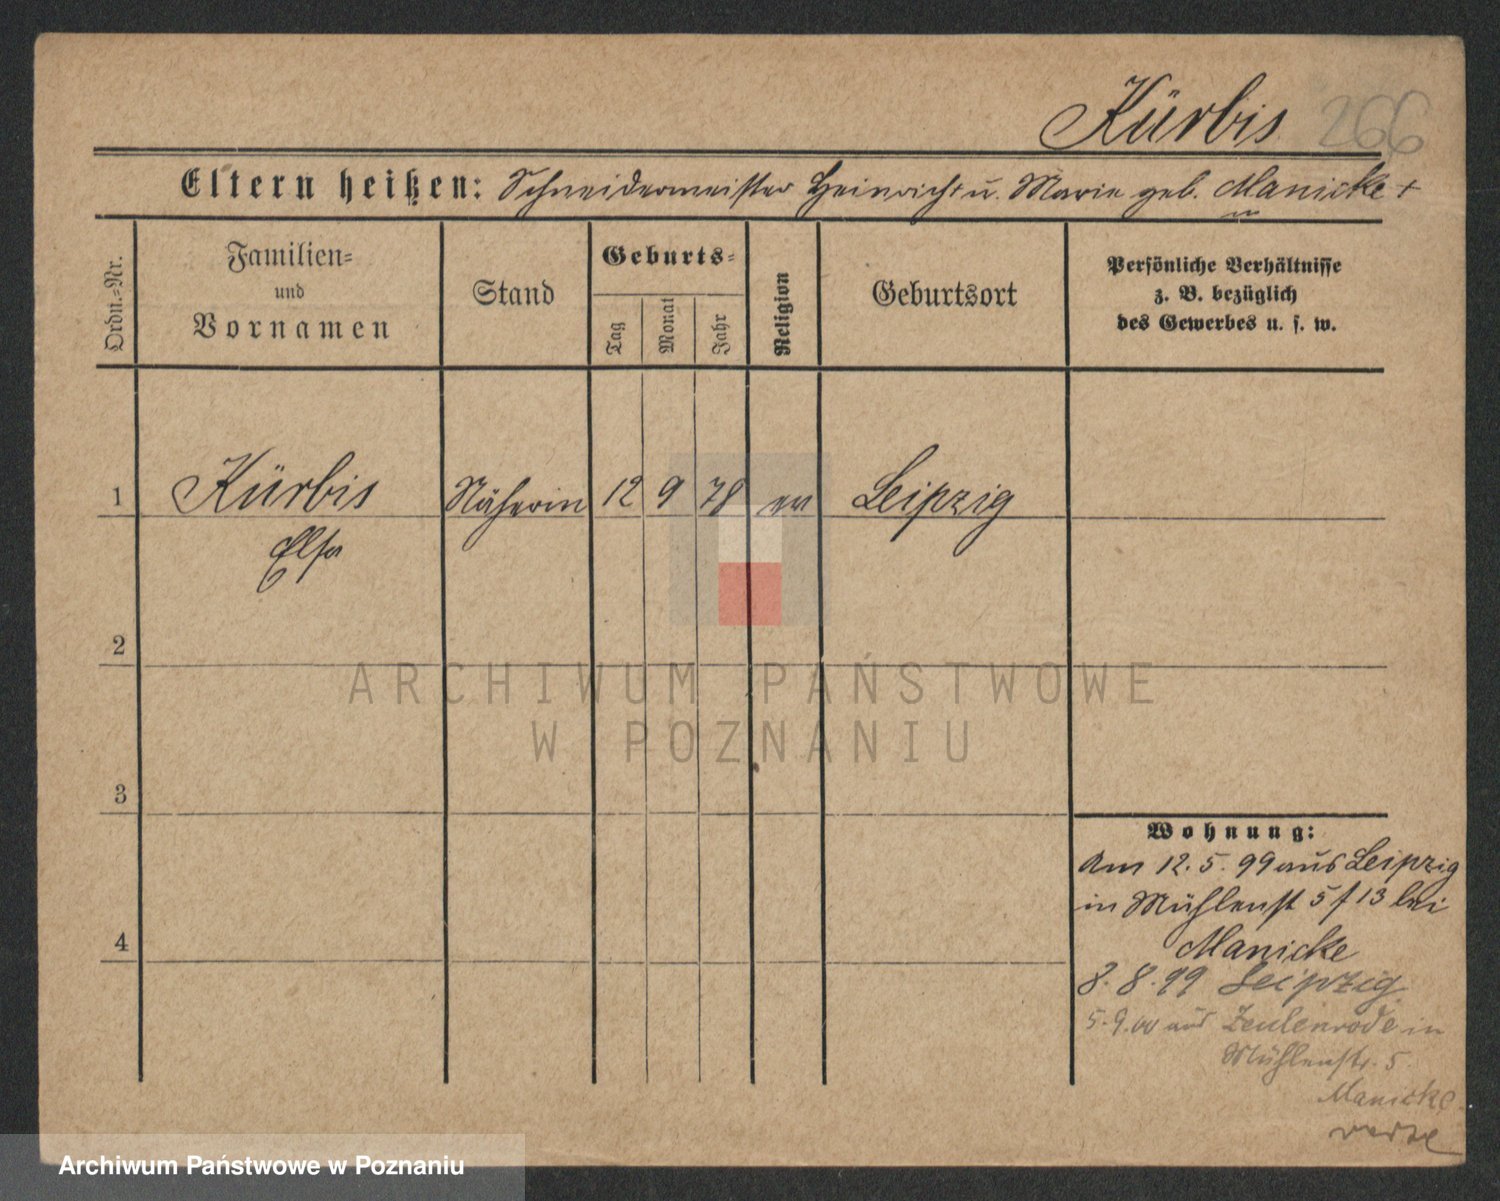 Kürbis 266
Eltern heißen: Schneidermeister Heinrich † u. Marie geb. Manicke †
Ordn.-Nr.
Familien-
und
Vornamen
Stand
Geburts-
Tag
Monat
Jahr
Religion
Geburtsort
Persönliche Verhältnisse
z. B. bezüglich
des Gewerbes u. s. w.
1 Kürbis Näherin 12 9 78 ev Leipzig
Elsa
2
3
4
Wohnung:
Am 12.5.99 aus Leipzig
in Mühlenst 5 f 13 bei
Manicke
8.8.99 Leipzig
5.9.00 aus Zeulenrode in
Mühlenstr. 5
Manicke
ARCHIWUM PAŃSTWOWE
W POZNANIU
Archiwum Państwowe w Poznaniu